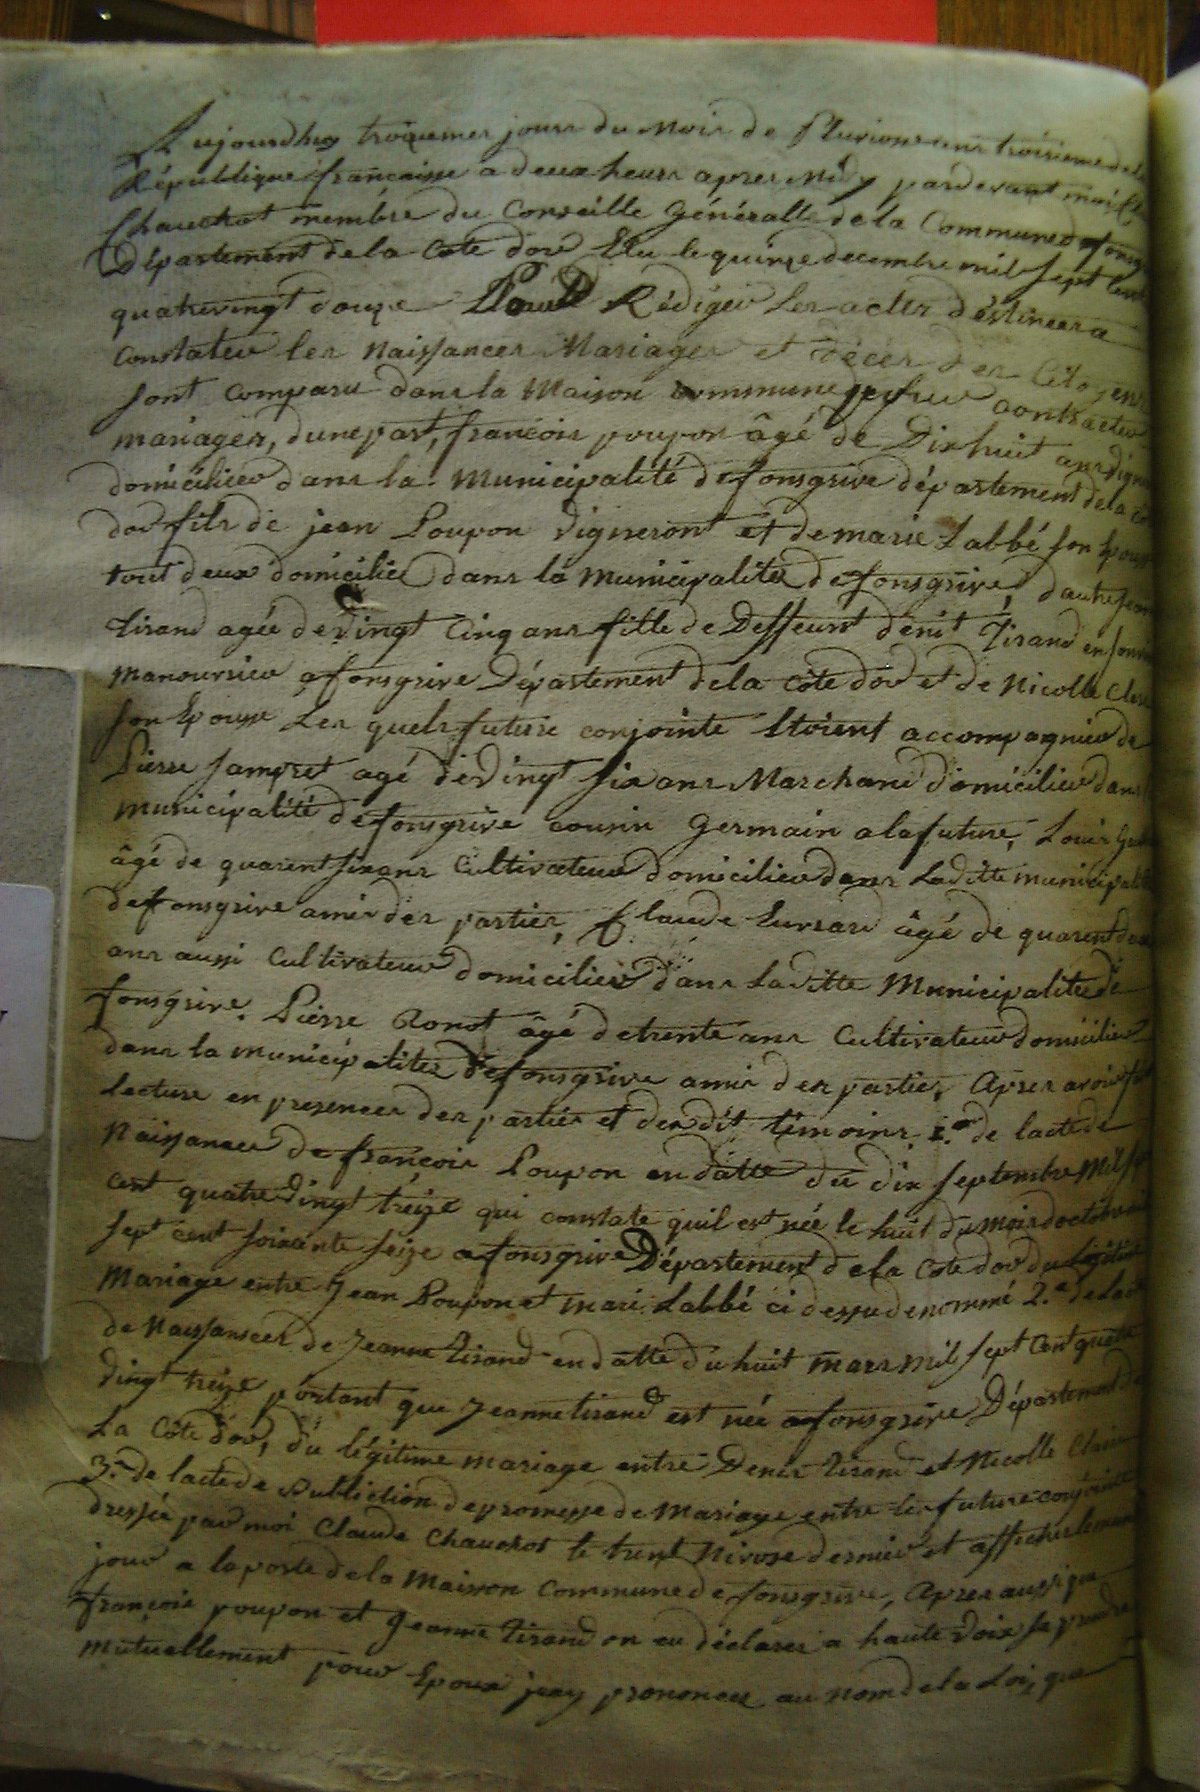 Aujourdhuy troisiemes jours du Mois de Pluviose ans troisieme de la
République françaisse a deux heurs apres Midy pardevant moi Cl
Chauchot membre du Conseille Généralle de la Commune de fonsg
Département de la Cote dor Elu le quinze decembre mil sept cent
quatrevingt douze Pour Rédiger les actes déstinees a
Constater les Naissances Mariages et décés des Citoyens
sont comparu dans la Maison commune pour contracter
mariages, dune part, francois poupon âgé de Dixhuit ans vigne
domicilier dans la Municipalité de fonsgrive département de la co
dor fils de jean Poupon vigneront et de marie Labbé son Epouse
tout deux domicilié dans la Municipalitée de fonsgrive, dautre
tirand agée de vingt Cinq ans fille de Deffeunt dénit Tirand en son
manouvrier a fonsgrive Département de la côte dor et de Nicolle Cl
son Epouse Les quels future conjointe Etoient accompagnier de
Pierre Jampret agé de vingt six ans Marchand domicilier dans
municipalité de fonsgrive cousin Germain a la future, Louis
âgé de quarent six ans Cultivateur domicilier dans Laditte municipalité
de fonsgrive amis des parties, Claude âgé de quarent deux
ans aussi Cultivateur domicilier dans Laditte Municipalitée de
fonsgrive. Pierre Ronot âgé de trente ans Cultivateur domicilier
dans la municipalitez de fonsgrive amis des parties, Apres avoir fait
Lecture en presences des parties et des dit témoins, 1.er de lacte de
Naissances de françois Poupon en datte du dix septembre Mil sept
cent quatre vingt treize qui constate quil est née le huit du mois doctobre mil
sept cent soixante seize a fonsgrive Département de la Cote dor du légitime
Mariage entre Jean Poupon et mari Labbé ci dessu denommé 2.e de lacte
de Naissances de Jeanne tirand en datte du huit mars mil sept cent quatre
vingt treize portant que Jeanne tirand est née a fonsgrive Département de
La Côte dor, du légitime mariage entre Denis tirand et Nicolle Claire
3.me de lacte de Publiction de promesse de Mariage entre les future conjointe
dressée par moi Claude Chauchot le trent Nivose dernier et afficher le meme
jour a la porte de la Maison Commune de fonsgrive, Apres aussi que
françois poupon et Jeanne tirand on eu déclarer a haute voix se prendre
mutuellement pour Epoux jeay prononcer au nom de la Loi, que